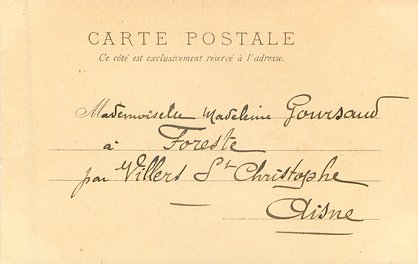 CARTE POSTALE
Ce côté est exclusivement réservé à l'adresse.
Mademoiselle Madeleine Goursaud
à Foreste
par Villers St Christophe
Aisne